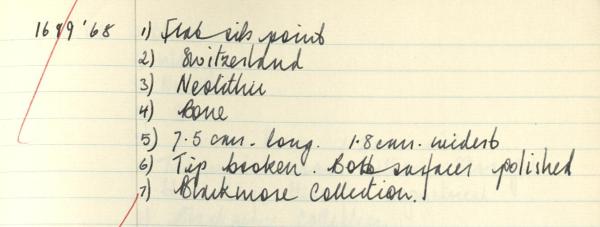 1689'68 1) Flat rib point
2) Switzerland
3) Neolithic
4) Bone
5) 7.5 cms. long. 1.8 cms. widest
6) Tip broken. Both surfaces polished
7) Blackmore Collection.